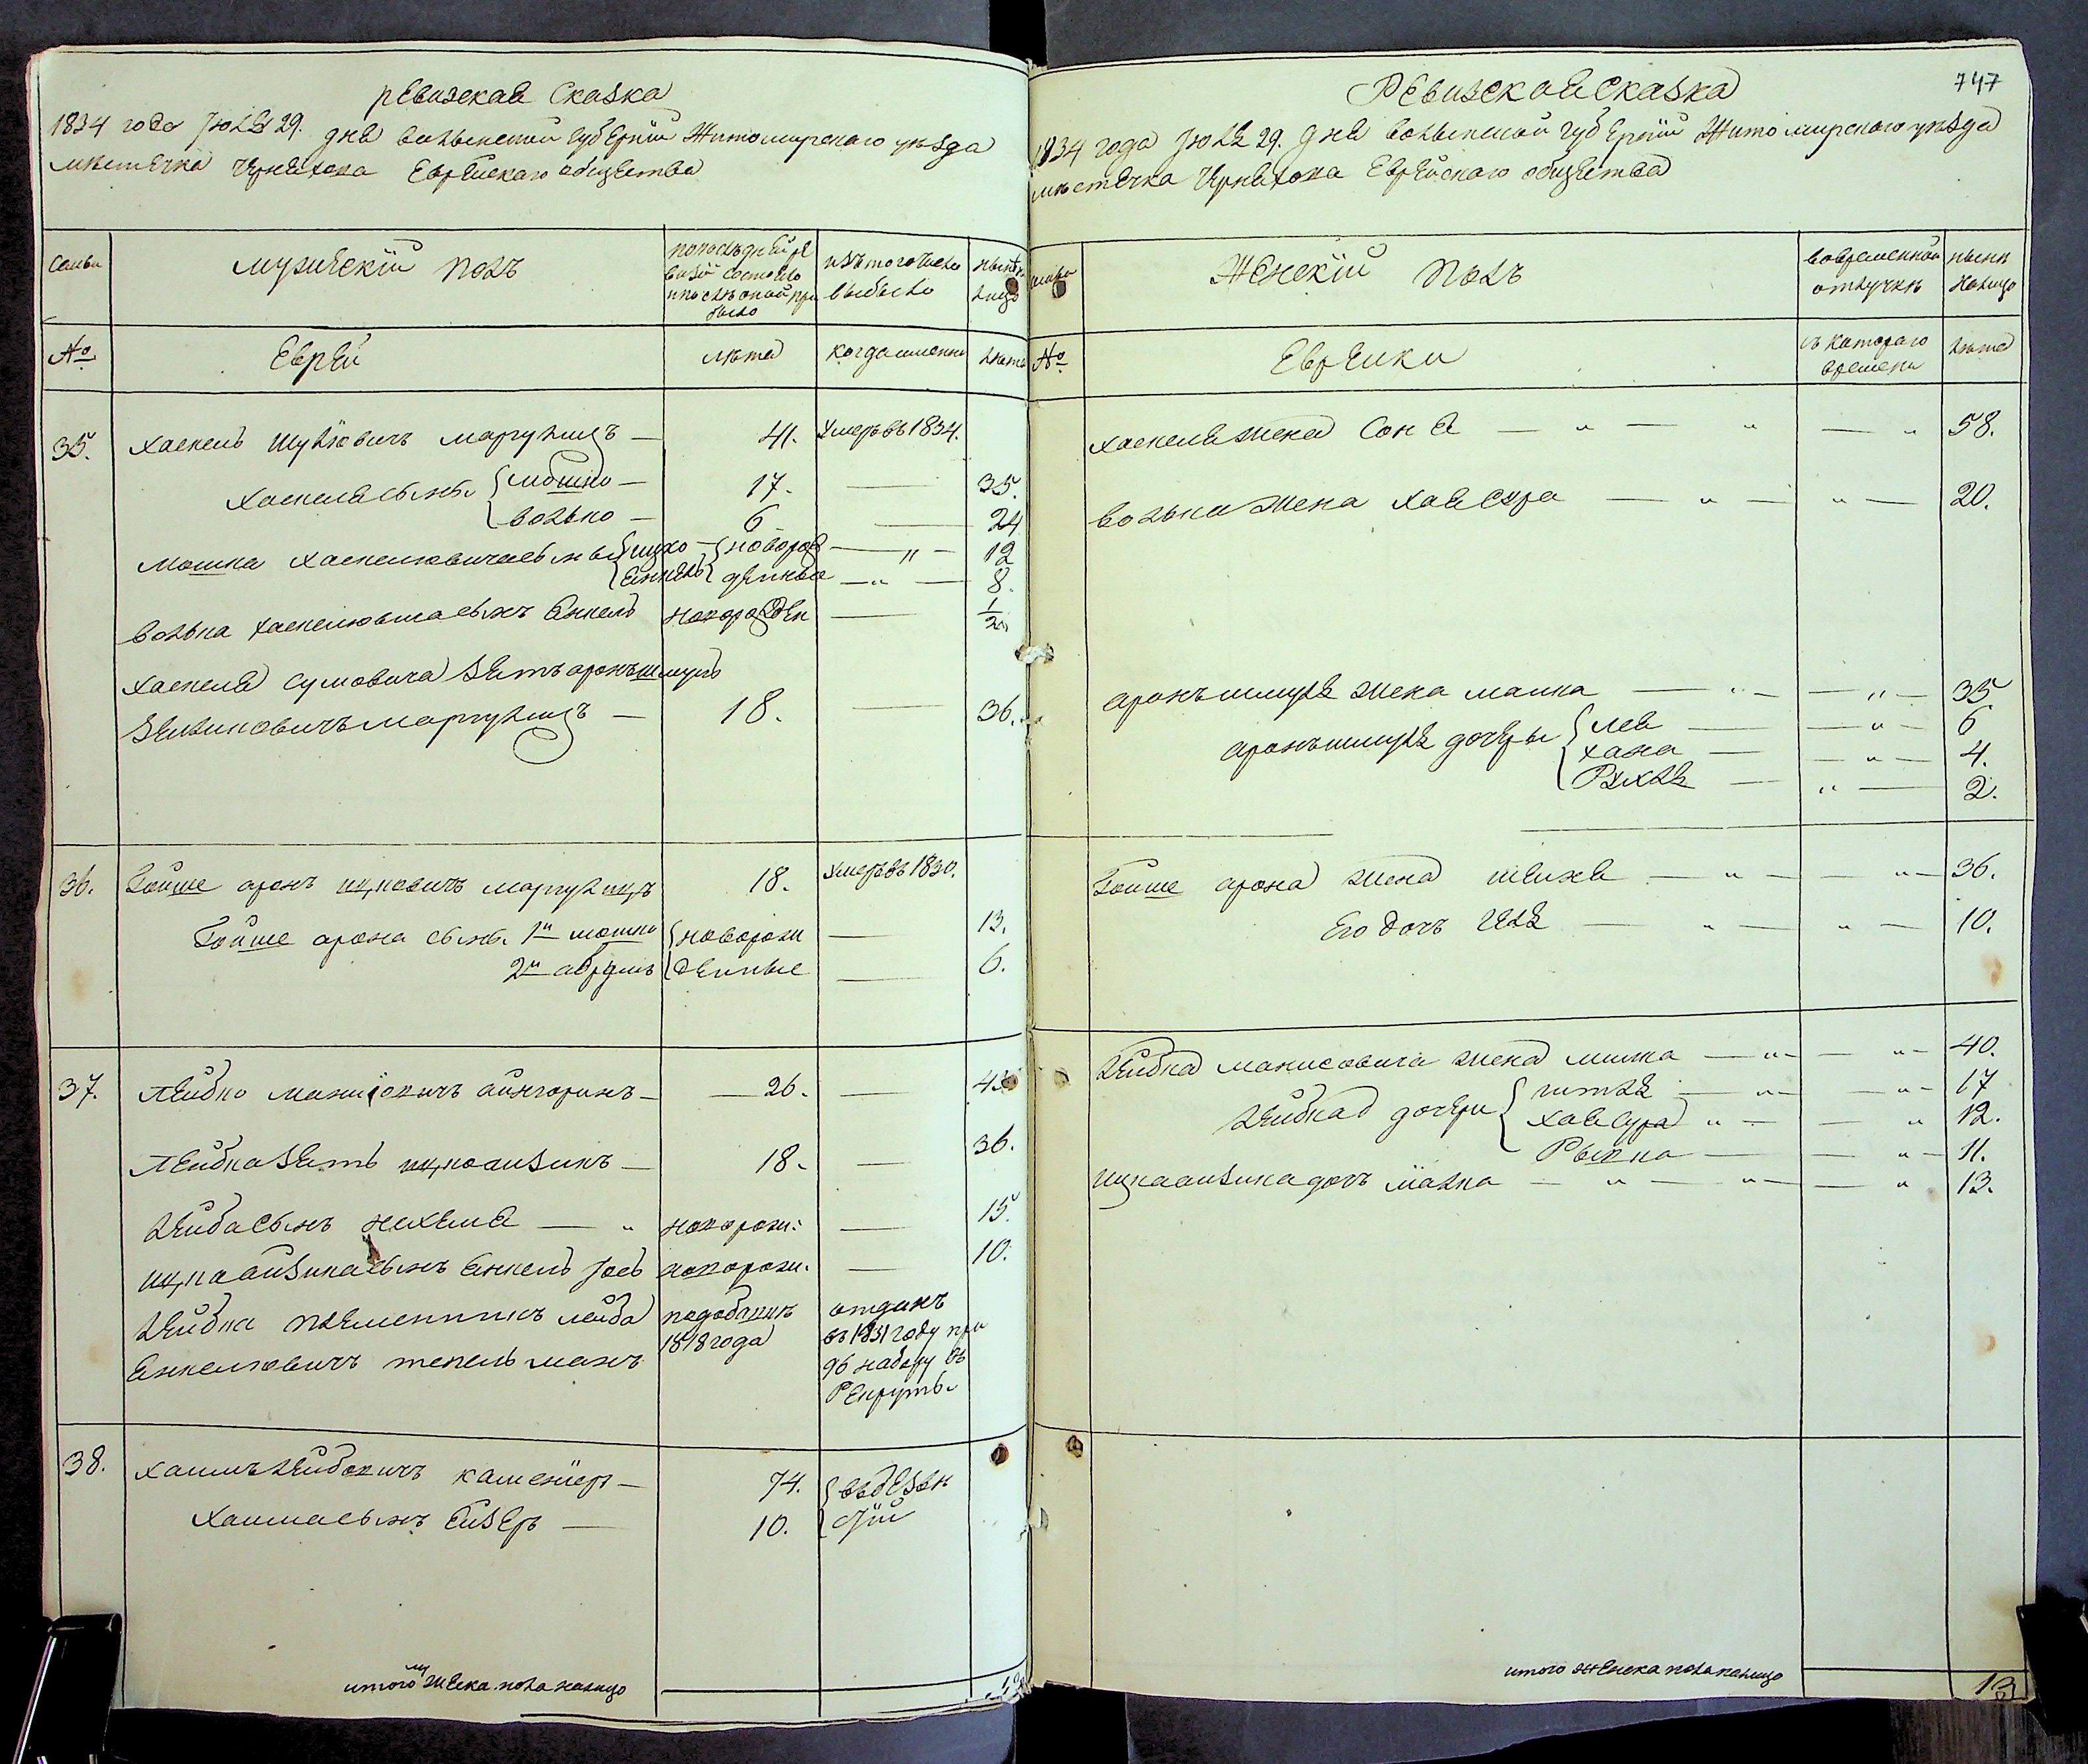 ревизская Сказка
1834 года Июля 29. дня волынской губернии Житомирского уѣзда
мѣстечка Черняхова Еврейскаго общества
Семьи
мужескій полъ
попослѣдней ре
визіи состояло
и послѣ оной при
было
изъ того числа
выбыло
нынѣ на
лицо
№
Еврей
лѣта
когда именно
лѣта
35. хаскель шулiовичъ маргулисъ — 41. умеръ въ 1834.
хаскеля сынъ мошко — 17. — 35.
волько — 6 — 24
мошка хаскелювича сыны ицко — новорож — " — 12
Янкель денные — " — 8.
волька хаскелювича сынъ Янкель новорожден — 1/2
хаскеля сумовича зять аронъ шмуль
зельиковичъ маргулисъ — 18. — 36.
36. Гойше аронъ ицковичъ маргулисъ 18. умеръ въ 1830.
Гойше арона сынъ 1й мошко новорож — 13.
2й абрумъ денные — 6.
37. лейбко манисовичъ айнгоринъ — 26. — 45
лейбка зять ицко айзикъ — 18. — 36.
лейба сынъ нехемя — " новорож: — 15.
ицка айзика сынъ Янкель Іось новорож. — 10.
лейбка племенникъ лейба
Янкелювичъ текельманъ
1818 года
отданъ
въ 1831 году при
96 набору въ
Рекруты
38. хаимъ лейбовичъ каменеръ — 74.
хаима сынъ Лизеръ — 10.
итого мужеска. пола налицо
747
Ревизской Сказка
1834 года Июля 29. дня волынской губерніи Житомирского уѣзда
мѣстечка Черняхова Еврейскаго общества
Женскій полъ
во временной
отлучкѣ
нынѣ
налицо
№
Еврейки
съ котораго
времени
лѣта
хаскеля жена Соня — " — " — " 58.
волька жена хая сура — " — " — 20.
аронъ шмуля жена малка — " — " — 35
аронъ шмуля дочеры лея — " — 6
хана — " — 4.
Рухля — " — 2.
Гойше арона жена шейня — " — " — 36.
Его дочь Челя — " — " — 10.
лейбка манисовича жена минка — " — " — 40.
лейбка дочери ителя — " — " — 17
хая сура " — " 12.
Рывка — " — 11.
ицка айзика дочь малка — " — " — " 13.
итого женска пола налицо 13